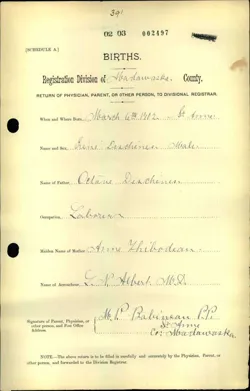 391
02 03 002497
[SCHEDULE A.]
BIRTHS.
Registration Division of Madawaska, County.
RETURN OF PHYSICIAN, PARENT, OR OTHER PERSON, TO DIVISIONAL REGISTRAR.
When and Where Born, March 6th 1912 St Anne
Name and Sex, Irené Deschenes Male
Name of Father, Octave Deschenes
Occupation, Laborer
Maiden Name of Mother, Anne Thibodeau
Name of Accoucheur, L. P. Albert M.D.
Signature of Parent, Physician, or other person, and Post Office Address
M. P. Babineau P.P.
St Anne
Co. Madawaska
NOTE.—The above return is to be filled in carefully and accurately by the Physician, Parent, or other person, and forwarded to the Division Registrar.